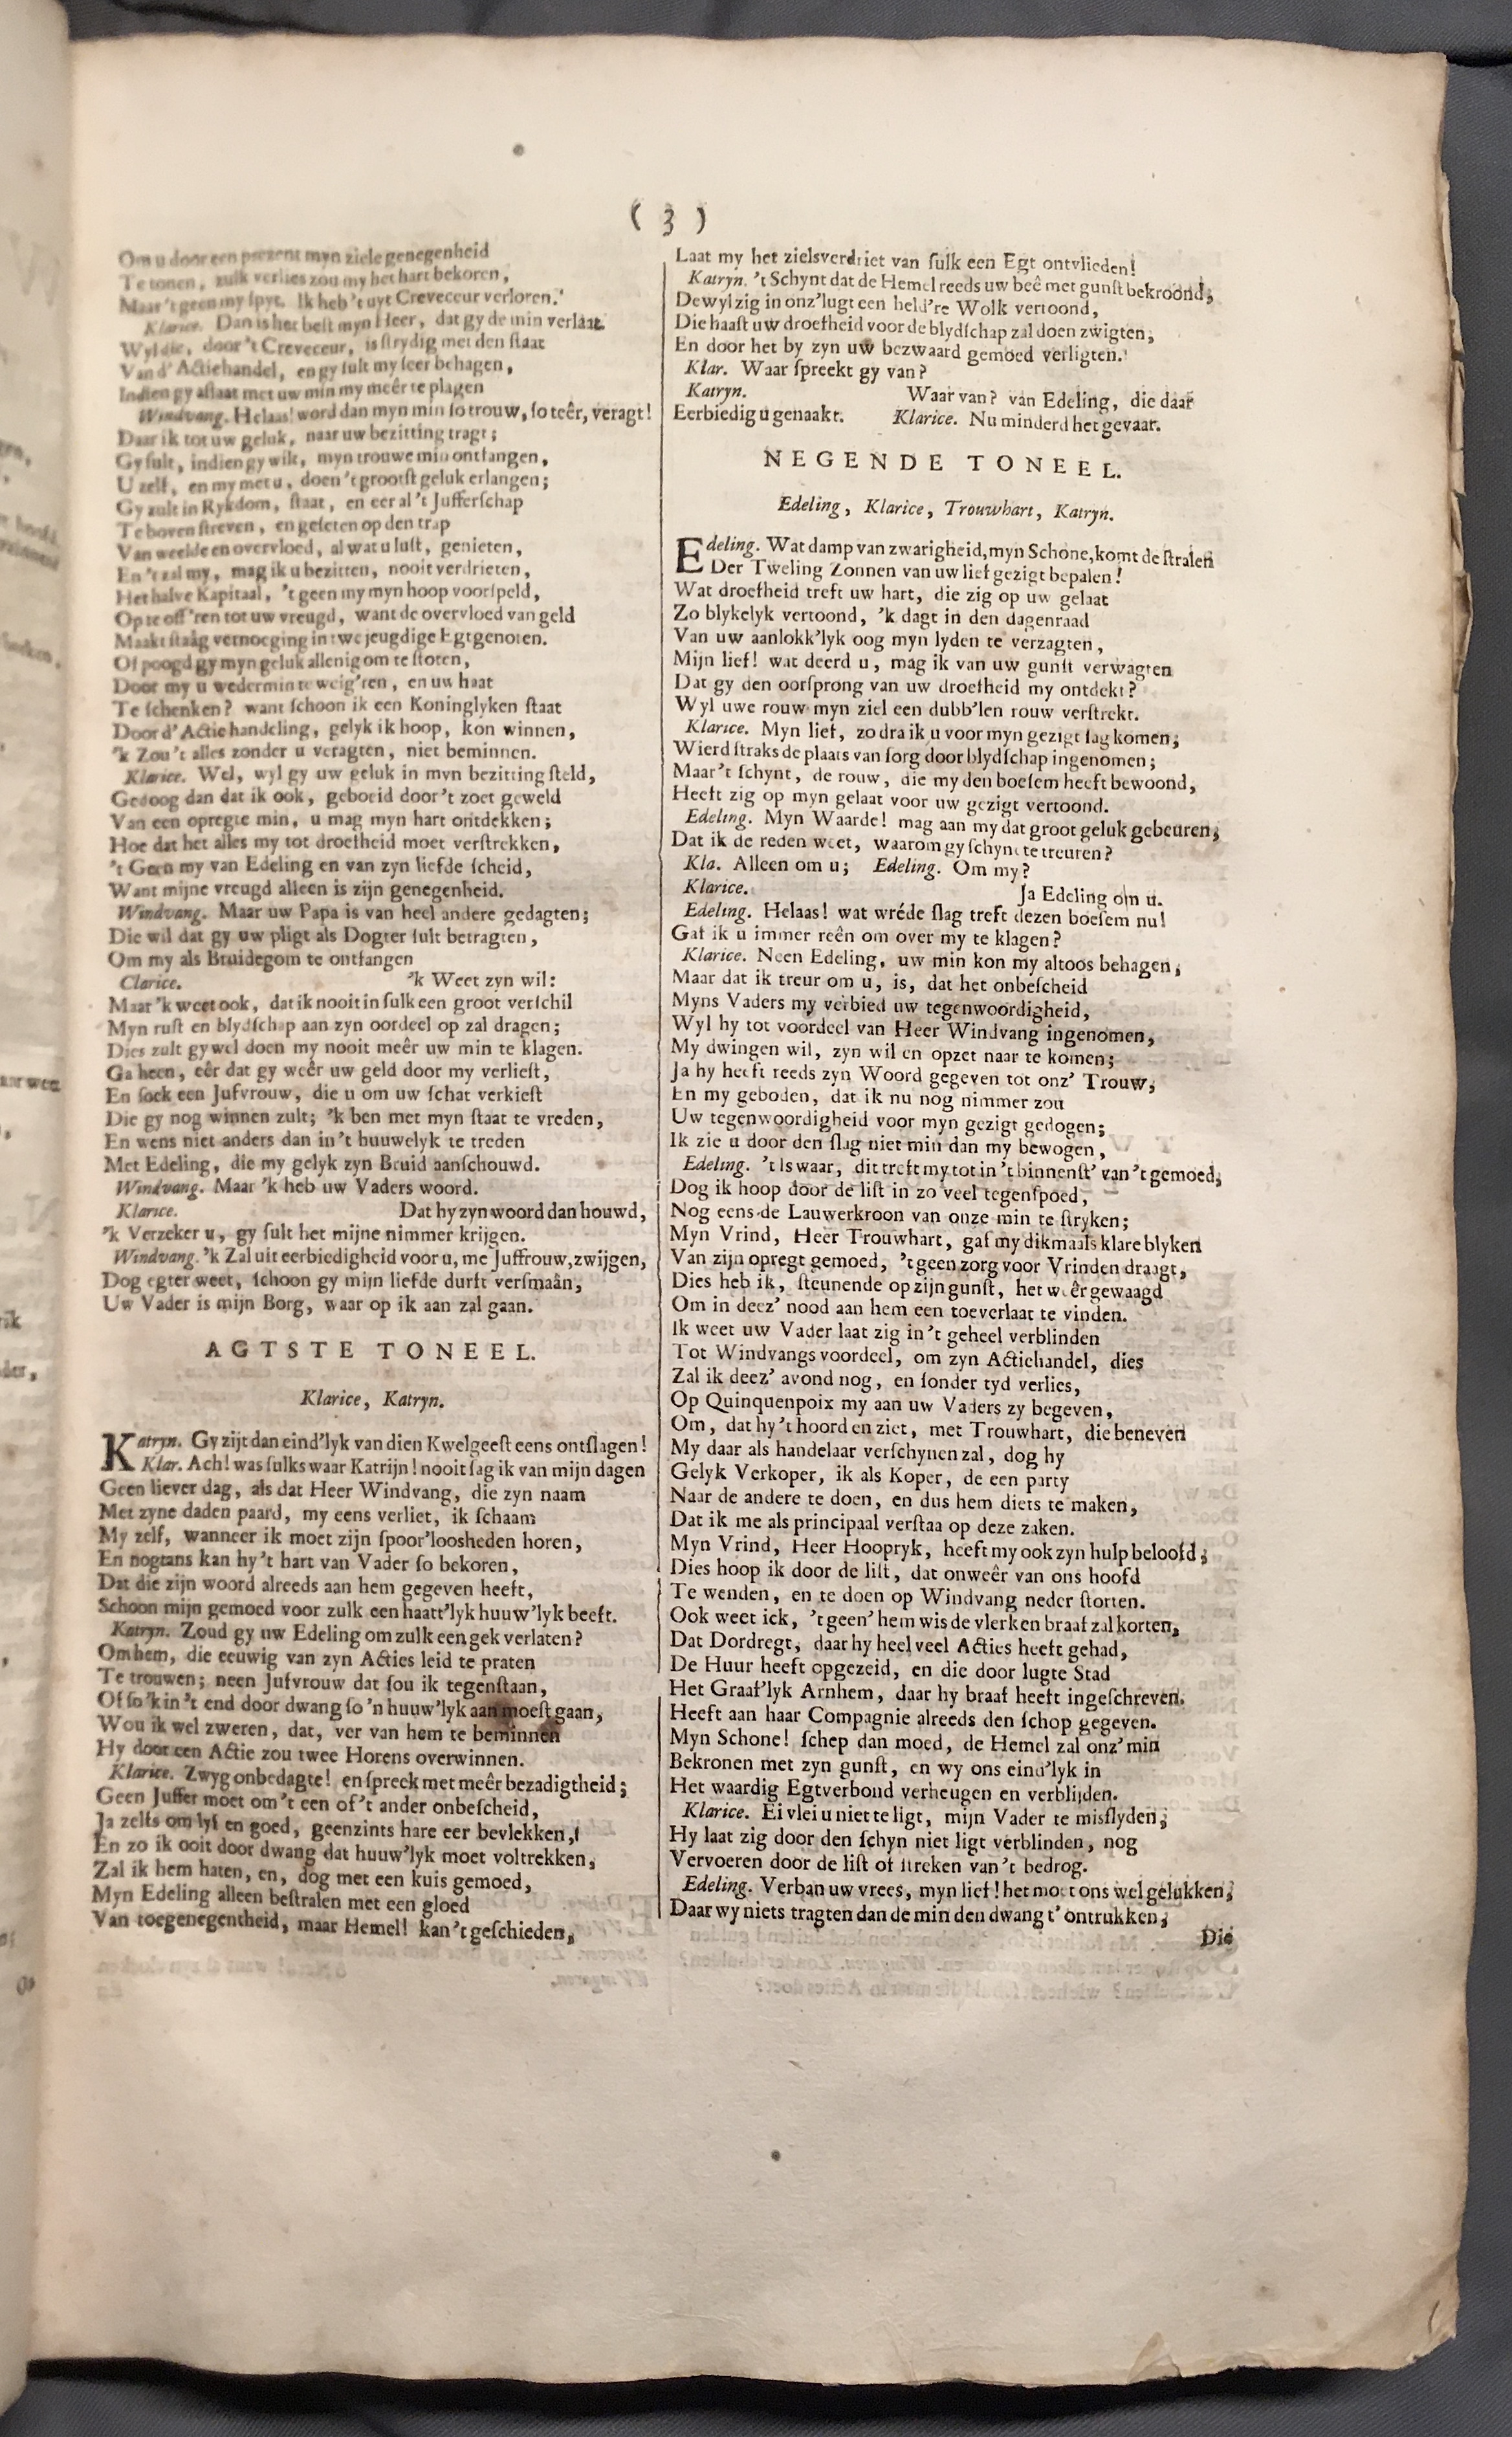 ( 3 )
Om u door een prezent myn ziele genegenheid
Te tonen, zulk verlies zou my het hart bekoren,
Maar 't geen my ſpyt, Ik heb 't uyt Creveceur verloren.
Klarice. Dan is het beſt myn Heer, dat gy de min verlaat.
Wyl die, door 't Creveceur, is ſtrydig met den ſtaat
Van d' Actiehandel, en gy ſult my ſeer behagen,
Indien gy aflaat met uw min my meêr te plagen
Windvang. Helaas! word dan myn min ſo trouw, ſo teêr, veragt!
Daar ik tot uw geluk, naar uw bezitting tragt;
Gy ſult, indien gy wilt, myn trouwe min ontfangen,
U zelf, en my met u, doen 't grootſt geluk erlangen;
Gy zult in Rykdom, ſtaat, en eer al 't Jufferſchap
Te boven ſtreven, en geſeten op den trap
Van weelde en overvloed, al wat u luſt, genieten,
En 't zal my, mag ik u bezitten, nooit verdrieten,
Het halve Kapitaal, 't geen my myn hoop voorſpeld,
Op te off'ren tot uw vreugd, want de overvloed van geld
Maakt ſtaâg vernoeging in twe jeugdige Egtgenoten.
Of poogd gy myn geluk allenig om te ſtoten,
Door my u wedermin te weig'ren, en uw haat
Te ſchenken? want ſchoon ik een Koninglyken ſtaat
Door d' Actiehandeling, gelyk ik hoop, kon winnen,
'k Zou 't alles zonder u veragten, niet beminnen.
Klarice. Wel, wyl gy uw geluk in myn bezitting ſteld,
Gedoog dan dat ik ook, geboeid door 't zoet geweld
Van een opregte min, u mag myn hart ontdekken;
Hoe dat het alles my tot droefheid moet verſtrekken,
't Geen my van Edeling en van zyn liefde ſcheid,
Want mijne vreugd alleen is zijn genegenheid.
Windvang. Maar uw Papa is van heel andere gedagten;
Die wil dat gy uw pligt als Dogter ſult betragten,
Om my als Bruidegom te ontfangen
Clarice. 'k Weet zyn wil:
Maar 'k weet ook, dat ik nooit in ſulk een groot verſchil
Myn ruſt en blydſchap aan zyn oordeel op zal dragen;
Dies zult gy wel doen my nooit meêr uw min te klagen.
Ga heen, eêr dat gy weêr uw geld door my verlieſt,
En ſoek een Jufvrouw, die u om uw ſchat verkieſt
Die gy nog winnen zult; 'k ben met myn ſtaat te vreden,
En wens niet anders dan in 't huuwelyk te treden
Met Edeling, die my gelyk zyn Bruid aanſchouwd.
Windvang. Maar 'k heb uw Vaders woord.
Klarice. Dat hy zyn woord dan houwd,
'k Verzeker u, gy ſult het mijne nimmer krijgen.
Windvang. 'k Zal uit eerbiedigheid voor u, me Juffrouw, zwijgen,
Dog egter weet, ſchoon gy mijn liefde durft verſmaân,
Uw Vader is mijn Borg, waar op ik aan zal gaan.
AGTSTE TONEEL.
Klarice, Katryn.
Katryn. Gy zijt dan eind'lyk van dien Kwelgeeſt eens ontſlagen!
Klar. Ach! was ſulks waar Katrijn! nooit ſag ik van mijn dagen
Geen liever dag, als dat Heer Windvang, die zyn naam
Met zyne daden paard, my eens verliet, ik ſchaam
My zelf, wanneer ik moet zijn ſpoor'loosheden horen,
En nogtans kan hy 't hart van Vader ſo bekoren,
Dat die zijn woord alreeds aan hem gegeven heeft,
Schoon mijn gemoed voor zulk een haatt'lyk huuw'lyk beeft.
Katryn. Zoud gy uw Edeling om zulk een gek verlaten?
Om hem, die eeuwig van zyn Acties leid te praten
Te trouwen; neen Jufvrouw dat ſou ik tegenſtaan,
Of ſo 'k in 't end door dwang ſo 'n huuw'lyk aan moeſt gaan,
Wou ik wel zweren, dat, ver van hem te beminnen
Hy door een Actie zou twee Horens overwinnen.
Klarice. Zwyg onbedagte! en ſpreek met meêr bezadigtheid;
Geen Juffer moet om 't een of 't ander onbeſcheid,
Ja zelfs om lyf en goed, geenzints hare eer bevlekken,
En zo ik ooit door dwang dat huuw'lyk moet voltrekken,
Zal ik hem haten, en, dog met een kuis gemoed,
Myn Edeling alleen beſtralen met een gloed
Van toegenegentheid, maar Hemel! kan 't geſchieden,
Laat my het zielsverdriet van ſulk een Egt ontvlieden!
Katryn. 't Schynt dat de Hemel reeds uw beê met gunſt bekroond,
Dewyl zig in onz' lugt een held're Wolk vertoond,
Die haaſt uw droefheid voor de blydſchap zal doen zwigten,
En door het by zyn uw bezwaard gemoed verligten.
Klar. Waar ſpreekt gy van?
Katryn. Waar van? van Edeling, die daar
Eerbiedig u genaakt. Klarice. Nu minderd het gevaar.
NEGENDE TONEEL.
Edeling, Klarice, Trouwhart, Katryn.
Edeling. Wat damp van zwarigheid, myn Schone, komt de ſtralen
Der Tweling Zonnen van uw lief gezigt bepalen!
Wat droefheid treft uw hart, die zig op uw gelaat
Zo blykelyk vertoond, 'k dagt in den dagenraad
Van uw aanlokk'lyk oog myn lyden te verzagten,
Mijn lief! wat deerd u, mag ik van uw gunſt verwagten
Dat gy den oorſprong van uw droefheid my ontdekt?
Wyl uwe rouw myn ziel een dubb'len rouw verſtrekt.
Klarice. Myn lief, zo dra ik u voor myn gezigt ſag komen;
Wierd ſtraks de plaats van ſorg door blydſchap ingenomen;
Maar 't ſchynt, de rouw, die my den boeſem heeft bewoond,
Heeft zig op myn gelaat voor uw gezigt vertoond.
Edeling. Myn Waarde! mag aan my dat groot geluk gebeuren,
Dat ik de reden weet, waarom gy ſchynt te treuren?
Kla. Alleen om u; Edeling. Om my?
Klarice. Ja Edeling om u.
Edeling. Helaas! wat wréde ſlag treft dezen boeſem nu!
Gaf ik u immer reên om over my te klagen?
Klarice. Neen Edeling, uw min kon my altoos behagen,
Maar dat ik treur om u, is, dat het onbeſcheid
Myns Vaders my verbied uw tegenwoordigheid,
Wyl hy tot voordeel van Heer Windvang ingenomen,
My dwingen wil, zyn wil en opzet naar te komen;
Ja hy heeft reeds zyn Woord gegeven tot onz' Trouw,
En my geboden, dat ik nu nog nimmer zou
Uw tegenwoordigheid voor myn gezigt gedogen;
Ik zie u door den ſlag niet min dan my bewogen,
Edeling. 't Is waar, dit treft my tot in 't binnenſt' van 't gemoed,
Dog ik hoop door de liſt in zo veel tegenſpoed,
Nog eens de Lauwerkroon van onze min te ſtryken;
Myn Vrind, Heer Trouwhart, gaf my dikmaals klare blyken
Van zijn opregt gemoed, 't geen zorg voor Vrinden draagt,
Dies heb ik, ſteunende op zijn gunſt, het weêr gewaagd
Om in deez' nood aan hem een toeverlaat te vinden.
Ik weet uw Vader laat zig in 't geheel verblinden
Tot Windvangs voordeel, om zyn Actiehandel, dies
Zal ik deez' avond nog, en ſonder tyd verlies,
Op Quinquenpoix my aan uw Vaders zy begeven,
Om, dat hy 't hoord en ziet, met Trouwhart, die beneven
My daar als handelaar verſchynen zal, dog hy
Gelyk Verkoper, ik als Koper, de een party
Naar de andere te doen, en dus hem diets te maken,
Dat ik me als principaal verſtaa op deze zaken.
Myn Vrind, Heer Hoopryk, heeft my ook zyn hulp beloofd;
Dies hoop ik door de liſt, dat onweêr van ons hoofd
Te wenden, en te doen op Windvang neder ſtorten.
Ook weet ick, 't geen' hem wis de vlerken braaf zal korten,
Dat Dordregt, daar hy heel veel Acties heeft gehad,
De Huur heeft opgezeid, en die door lugte Stad
Het Graaf'lyk Arnhem, daar hy braaf heeft ingeſchreven.
Heeft aan haar Compagnie alreeds den ſchop gegeven.
Myn Schone! ſchep dan moed, de Hemel zal onz' min
Bekronen met zyn gunſt, en wy ons eind'lyk in
Het waardig Egtverbond verheugen en verblijden.
Klarice. Ei vlei u niet te ligt, mijn Vader te misſlyden;
Hy laat zig door den ſchyn niet ligt verblinden, nog
Vervoeren door de liſt of ſtreken van 't bedrog.
Edeling. Verban uw vrees, myn lief! het moet ons wel gelukken,
Daar wy niets tragten dan de min den dwang t' ontrukken;
Die